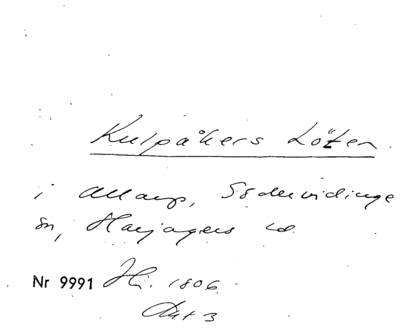 Kulpåkers Löten
i Allarp, Södervidinge
sn, Harjagers hd
Nr 9991 Hi. 1806
Akt 3